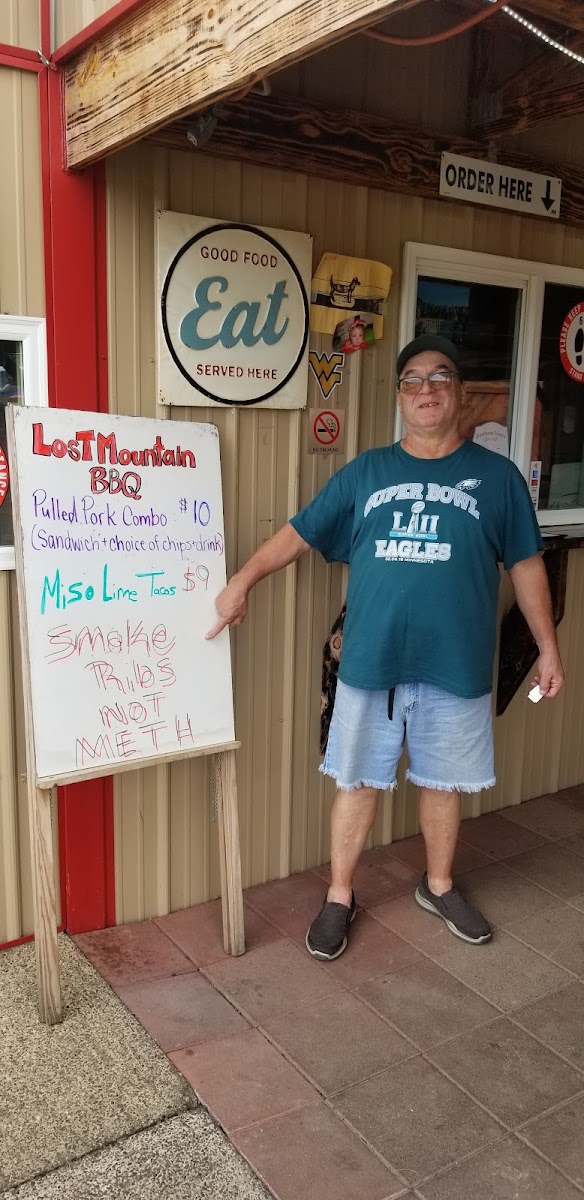 ORDER HERE
GOOD FOOD
Eat
SERVED HERE
WV
NO SMOKING
LosT Mountain
BBQ
Pulled Pork Combo : $10
(Sandwich + choice of chips + drink)
Miso Lime Tacos $9
SMOKE
RIbS
NOT
METH
SUPER BOWL
LII
EAGLES
02.04.18 MINNESOTA
PLEASE KEEP